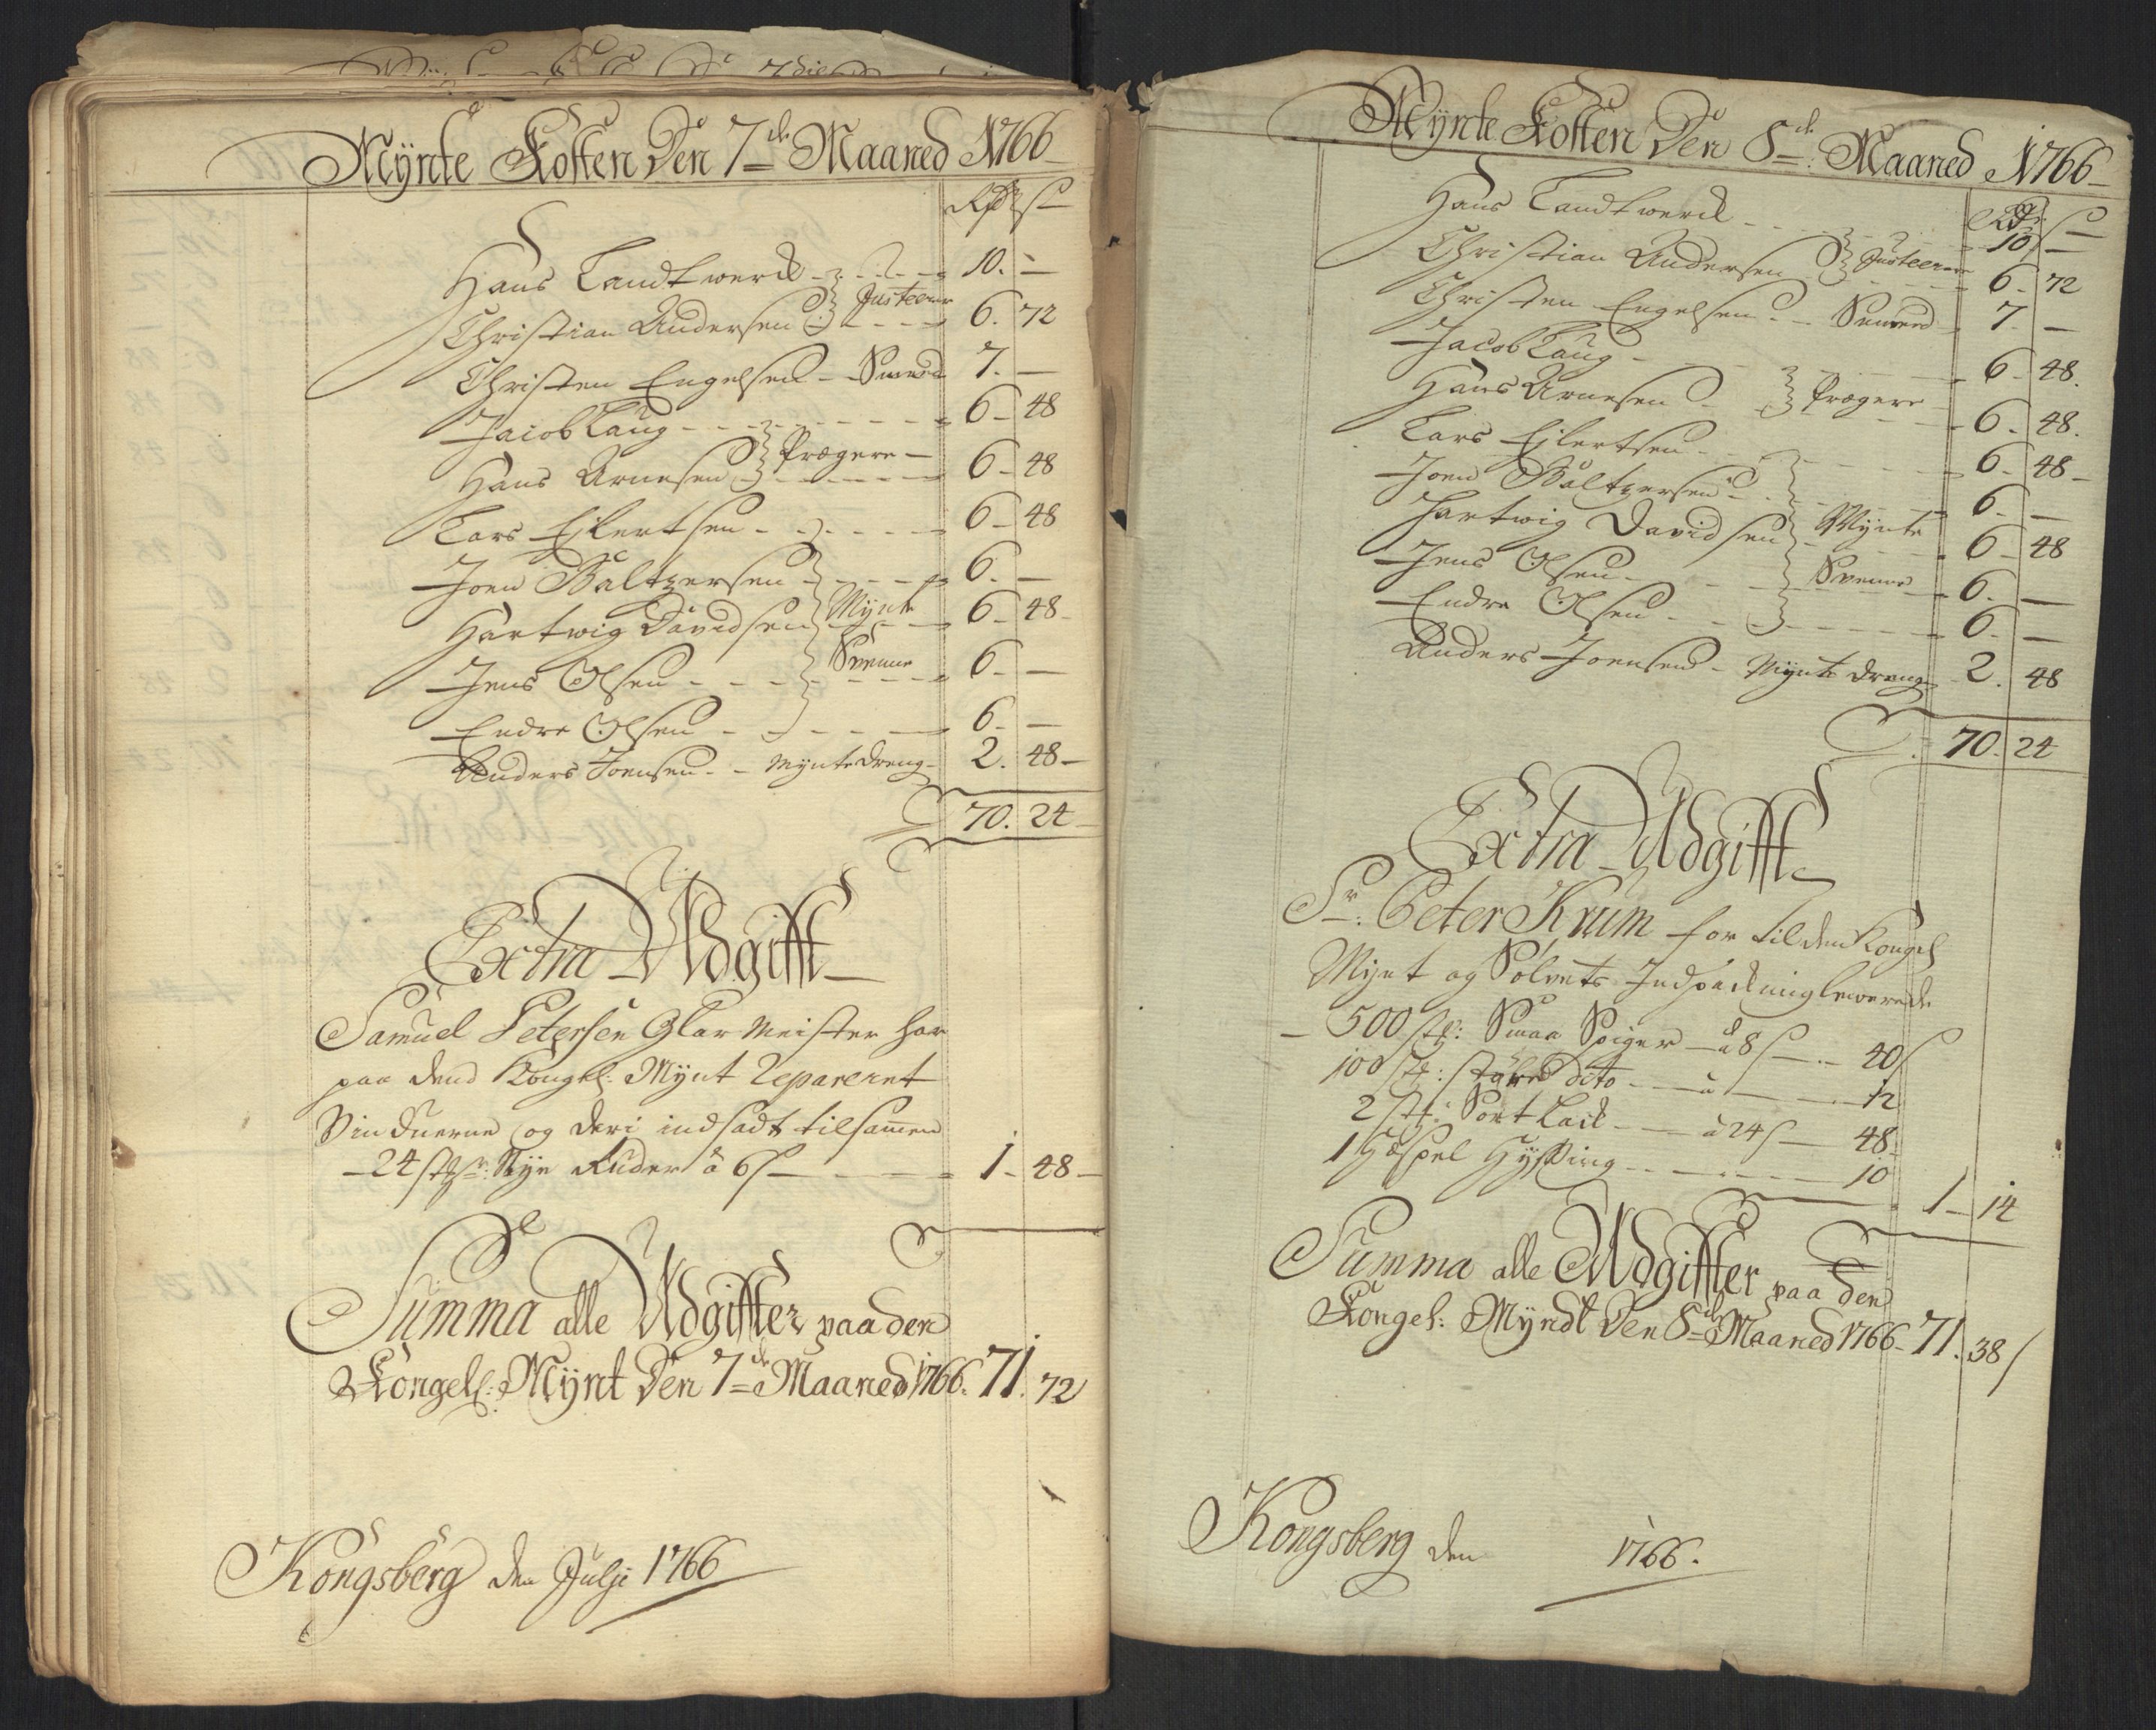 Mÿnte Kosten Den 7de Maaned 1766
Rdr s
Hans Landtwerck 10. —
Christian Andersen Justeerer 6. 72
Christen Engelsen Smed 7. —
Jacob Laug 6 — 48
Hans Arnesen Prægere 6 — 48
Lars Eilertsen 6 — 48
Joen Baltzersen 6. —
Hartwig Davidsen Mÿnte 6. 48
Jens Olsen Svenne 6. —
Endre Olsen 6. —
Anders Joensen Mÿntedreng 2. 48
70. 24
Extra Udgifft
Samuel Petersen Glar Meister har
paa dend Kongel: Mÿnt Repareret
Vinduerne og deri indsadt tilsamen
24 stk: Nÿe Ruder à 6 s 1 — 48
Summa alle Udgiffter paa den
Kongel: Mÿnt Den 7de Maaned 1766. 71. 72
Kongsberg den Julji 1766
Mÿnte Kosten Den 8de: Maaned 1766
Rdr s
Hans Landtwerck 10 —
Christian Andersen Justeerere 6. 72
Christen Engelsen Smed 7. —
Jacob Laug 6 — 48.
Hans Arnesen Prægere 6. 48.
Lars Eilertsen 6. 48
Joen Baltzersen 6. —
Hartwig Davidsen Mÿnte 6 — 48
Jens Olsen Svenne 6. —
Endre Olsen 6. —
Anders Joensen Mÿnte dreng 2. 48
70. 24
Extra Udgifft
Sr: Peter Krum for til den Kongel
Mÿnt og Sølvets Indpackning leverede
500 stk: Smaa Spiger à 8 s 40 s
100 stk: støre dito à 12
2 stk: Sort Lack à 24 s 48
1 Haspel Hÿssing 10
1 — 14
Summa alle Udgiffter paa den
Kongel: Mÿndt Den 8de Maaned 1766 — 71. 38 s
Kongsberg den 1766.